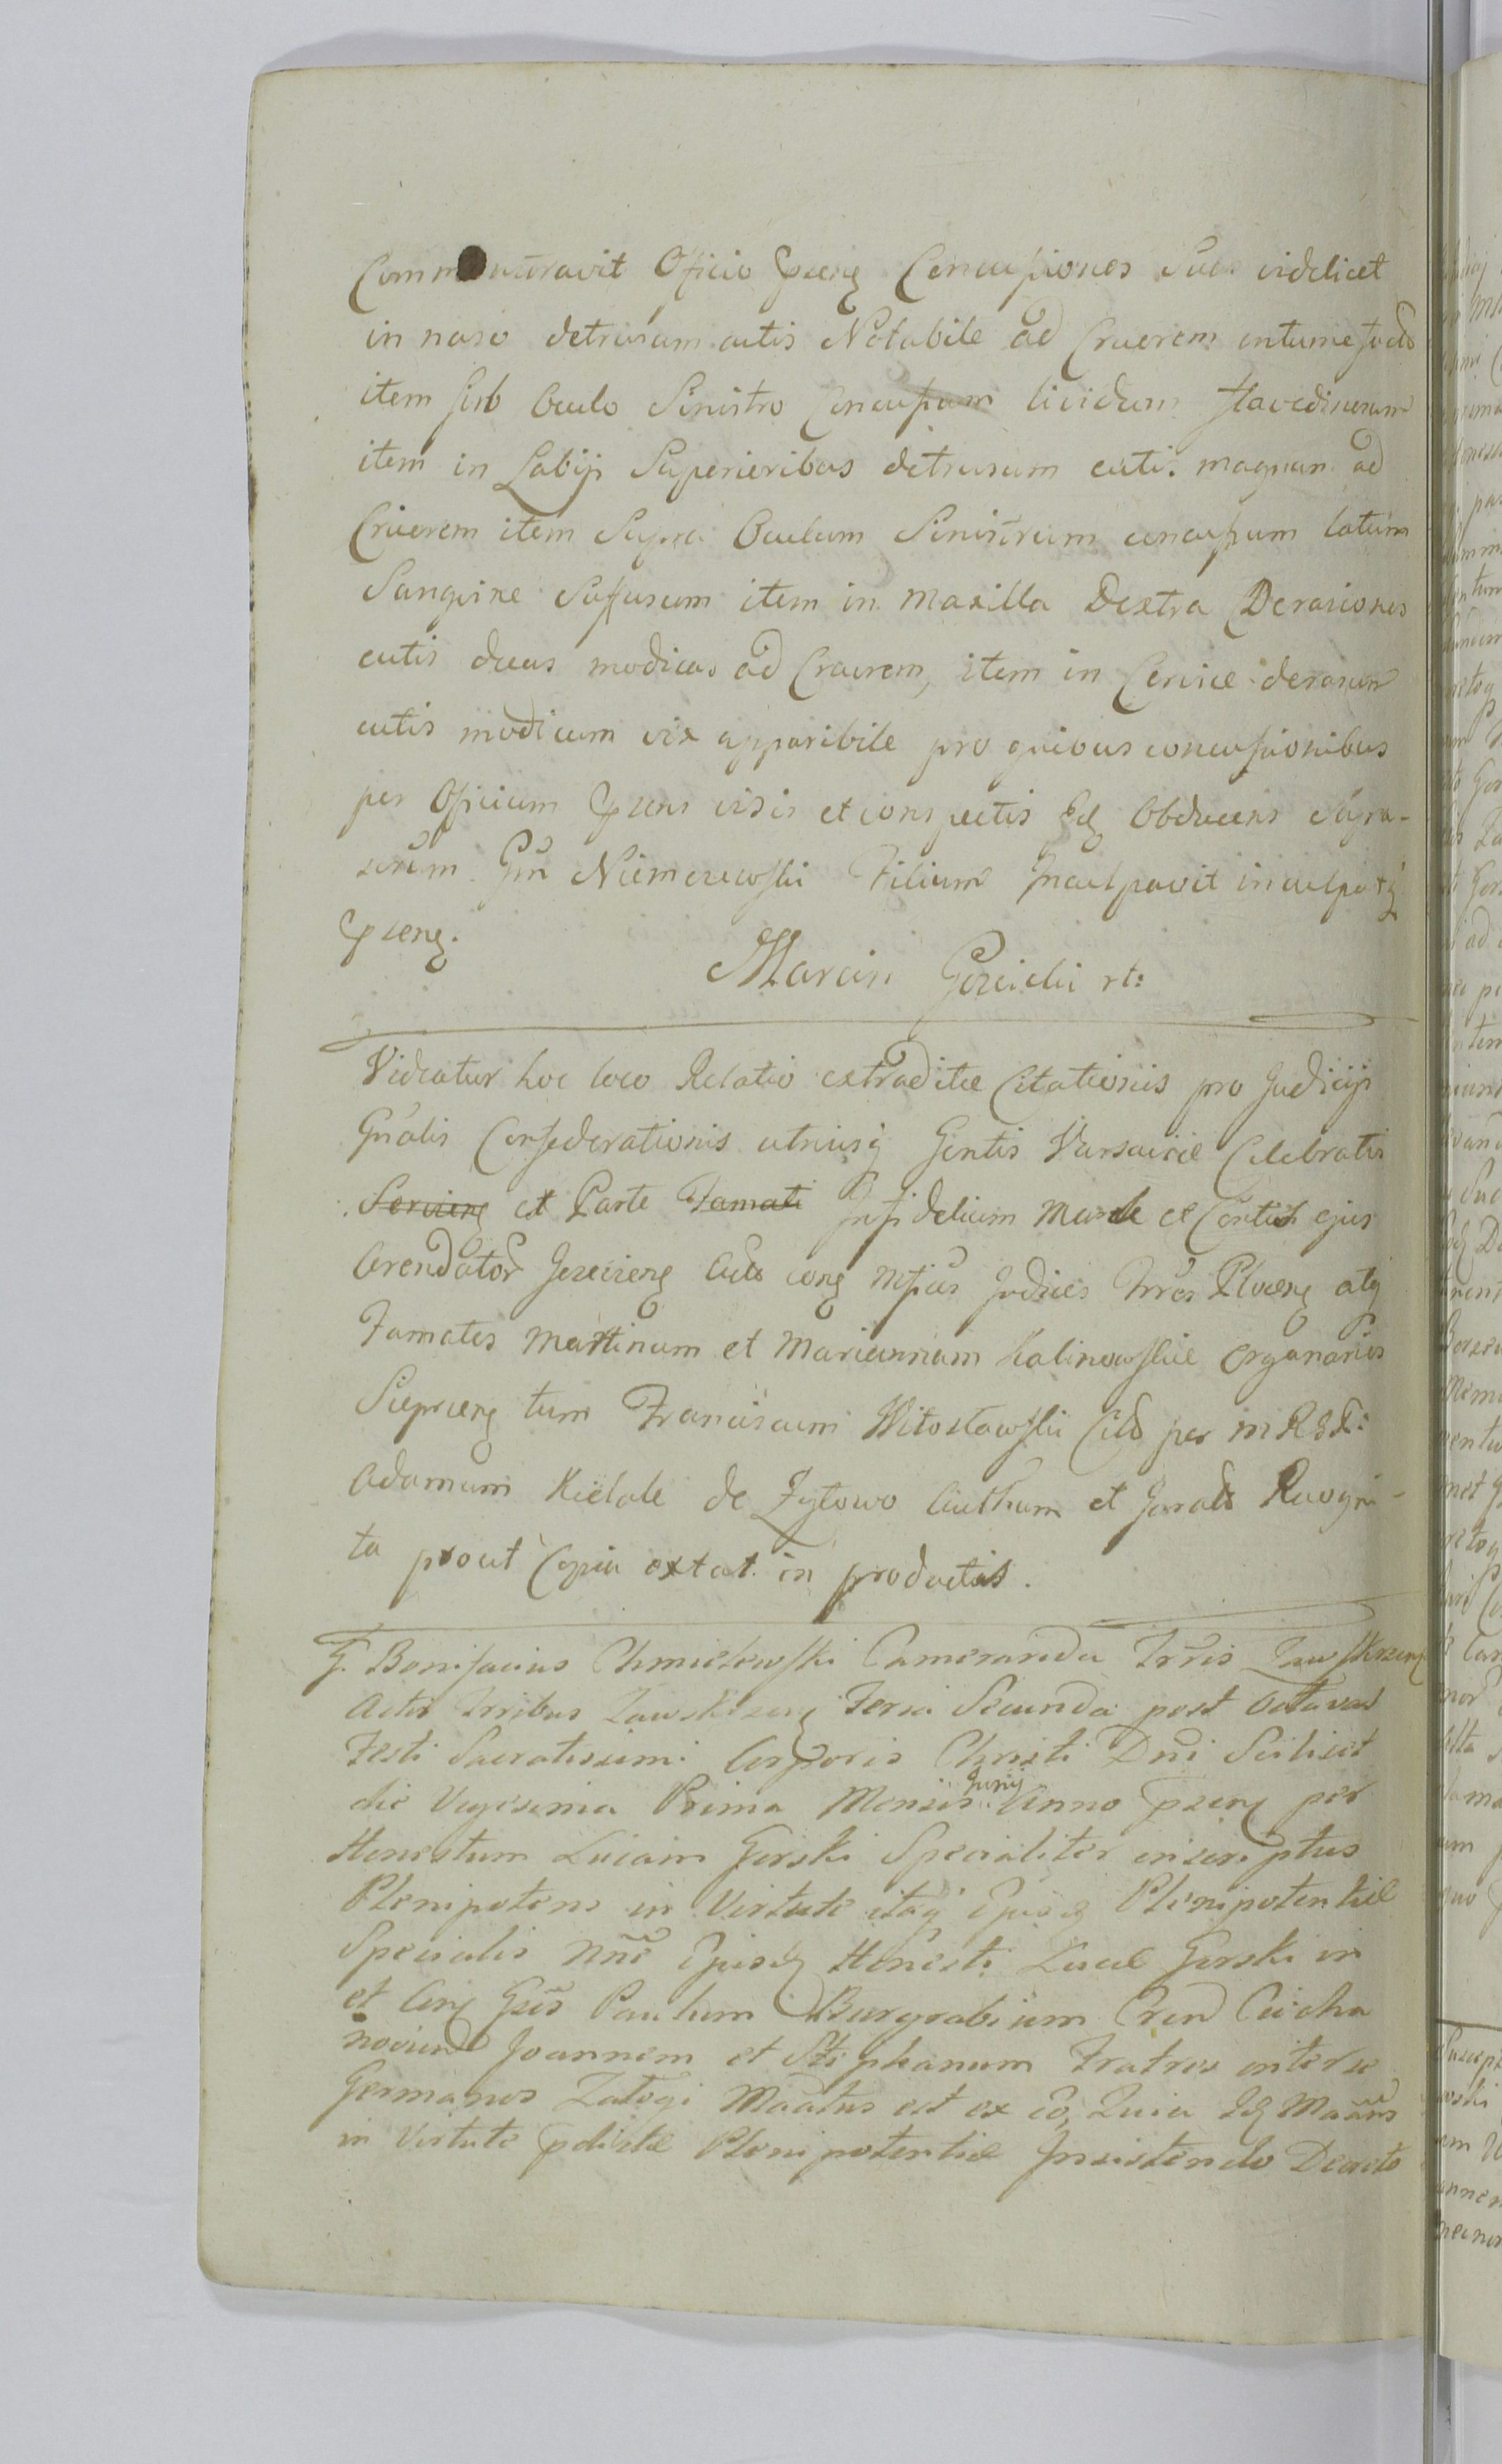 Commonstravit Officio Psenq Concussiones Suas videlicet
in naso detrusum cutis Notabile ad Cruorem intumefacto
item sub Oculo Sinistro Concussum lividum flavedinosum
item in Labijs Superioribus detrusum cutis magnum ad
Cruorem item Supra Oculum Sinistrum concussum latum
Sanguine Suffusum item in Maxilla Dextra Derasiones
cutis duas modicas ad Cruorem, item in Cervice derasum
cutis modicum vix apparibile pro quibus concussionibus
per Officium Psens visis et conspectis Idq Obducens Supra-
scrum Gsi Niemczewski Filium Inculpavit inculpatq
Psenq.
Marcin Gozicki rt:
Videatur hoc loco Relatio extraditæ Citationis pro Judicijs
Gnalis Confœderationis utriusq Gentis Varsaviæ Celebratis
et Parte Infidelium et ejus
Arendator Acto conq Mficus Judices Trres Plocenq atq
Famatos Martinum et Mariannam Kalinowskie Organarios
Sieprcenq tum Franciscum Witosławski Cito per M
Adamum Kielak de Zytowo Authum et Jurato Recogni-
ta prout Copia extat in productis.
G. Bonifacius Chmielewski Camerarida Trris Zawskrzenq
Actis Trribus Zawskrzenq Feria Secunda post Octavas
Festi Sacratissimi Corporis Christi Dni Scilicet
die Vigesima Prima Mensis Junij Anno Psenq per
Honestum Lucam Gorski Specialiter inscriptus
Plenipotens in Virtute itaq Ejusq Plenipotentiæ
Specialis Nne Ejusdq Honesti Lucæ Gorski in
et Conq Gsos Paulum Burgrabium Cren Ciecha
novien Joannem et Stephanum Fratres inter se
Germanos Załęgi Maatus est ex eo, Quia Idq Maans
in Virtute pdictæ Plenipotentiæ Insistendo Decreto